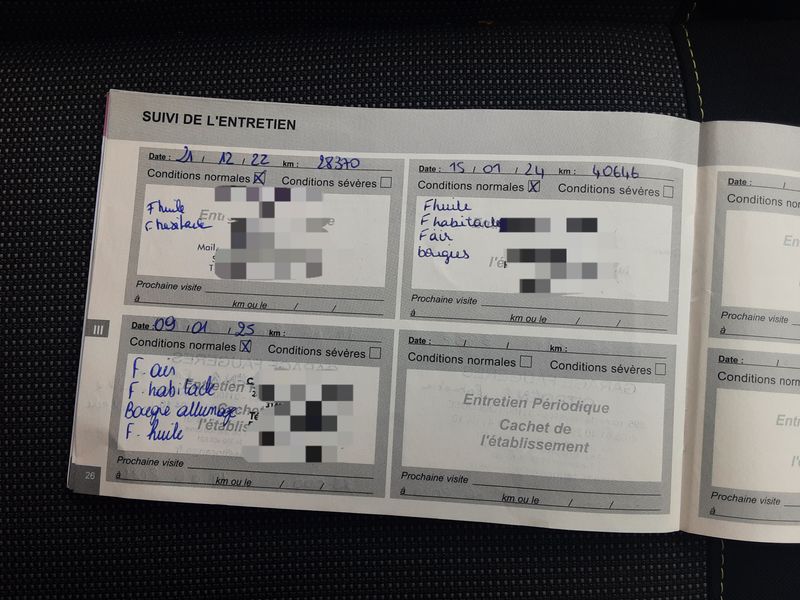 SUIVI DE L'ENTRETIEN
Date : 21 / 12 / 22 km : 28370
Conditions normales ☒ Conditions sévères ☐
F huile
F habitacle
Mail
Prochaine visite
à km ou le / /
Date : 15 / 01 / 24 km : 40646
Conditions normales ☒ Conditions sévères ☐
F huile
F habitacle
F air
bougies
Prochaine visite
à km ou le / /
Date : 09 / 01 / 25 km :
Conditions normales ☒ Conditions sévères ☐
F. air
F. habitacle
Bougie allumage
F. huile
Entretien
l'établis
Prochaine visite
à km ou le / /
Date : / / km :
Conditions normales ☐ Conditions sévères ☐
Entretien Périodique
Cachet de
l'établissement
Prochaine visite
à km ou le / /
III
26
Date : /
Conditions norm
Prochaine visite
à
Date : /
Conditions norm
Prochaine visite
à